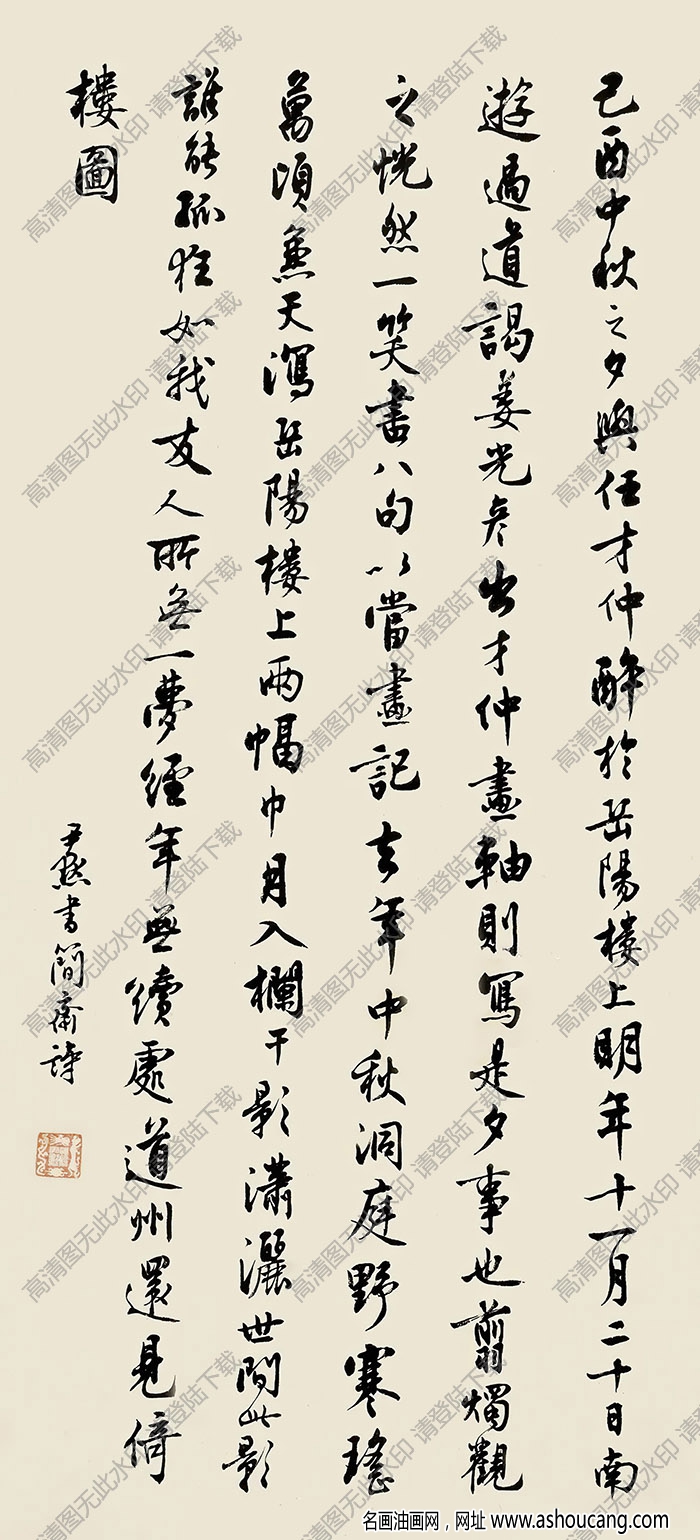 己酉中秋之夕與任才仲醉於岳陽樓上明年十一月二十日南
遊過道謁姜光彥出才仲畫軸則寫是夕事也剪燭觀
之恍然一笑書八句以當畫記去年中秋洞庭野寒瑤
萬頃兼天瀉岳陽樓上兩幅巾月入欄干影瀟灑世間此影
誰能孤狂如我友人所無一夢經年無續處道州還見倚
樓圖
尹默書簡齋詩
高清图无此水印 请登陆下载
名画油画网，网址 www.ashoucang.com